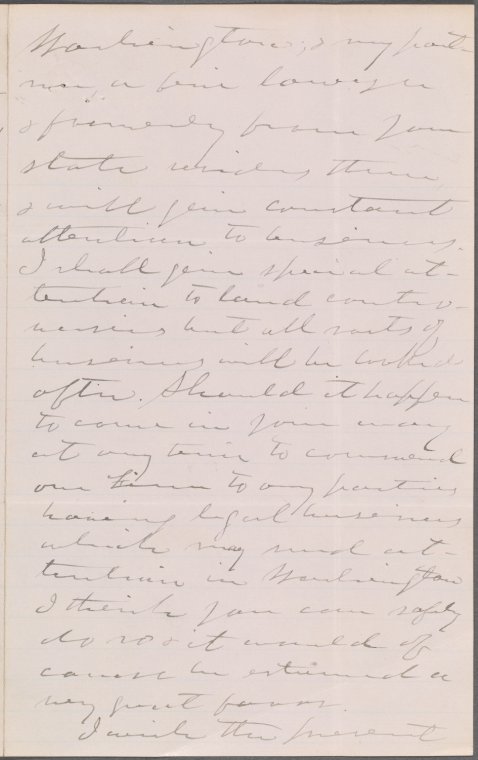 Washington; & my part-
ner, a fine lawyer
& formerly from your
state resides there,
& will give constant
attention to business.
I shall give special at-
tention to land contro-
versies but all sorts of
business will be looked
after. Should it happen
to come in your way
at any time to commend
our firm to any parties
having legal business
which may need at-
tention in Washington
I think you can safely
do so & it would of
course be esteemed a
very great favor.
I wish the present